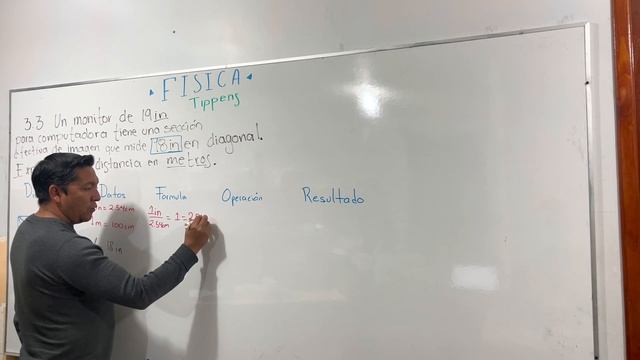 FISICA
Tippens
3.3 Un monitor de 19 in
para computadora tiene una sección
efectiva de imagen que mide 18 in en diagonal.
distancia en metros.
Datos Formula Operación Resultado
in = 2.54cm 1in = 1 = 2
1m = 100cm 2.54cm
18 in